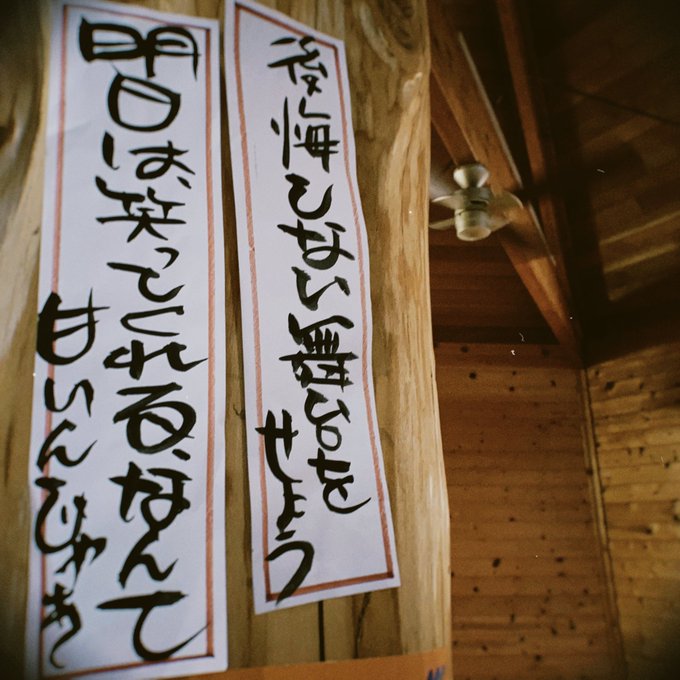 後悔しない舞いを
せよう
明日は、笑ってくれる、なんて
甘いんじゃあ